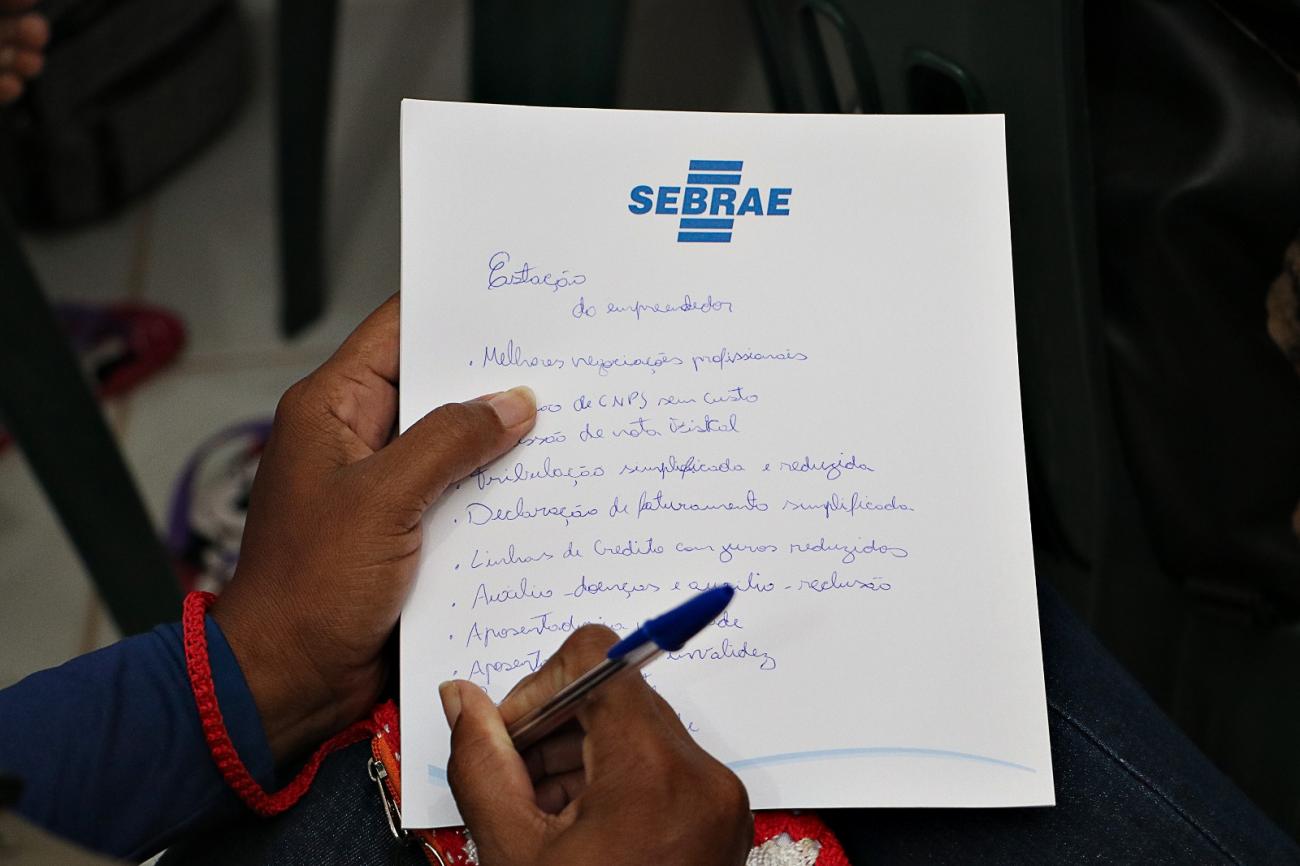 SEBRAE
Estação
do empreendedor
. Melhores negociações profissionais
de CNPS sem custo
de nota Fiskal
. Tribulação simplificada e reduzida
. Declaração de faturamento simplificada
. Linhas de Credito con juros reduzidos
. Auxílio-doenças e auxilio-reclusão
.
. invalidez